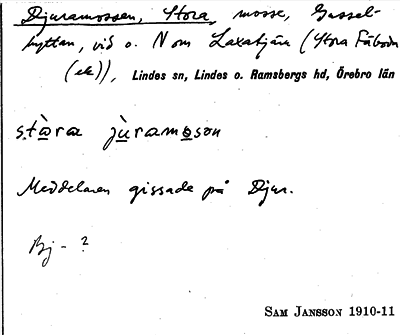 Djuramossen, Stora, mosse, Gussel-
hyttan, vid o. N om Laxatjärn (Stora Fåboda
(ek)), Lindes sn, Lindes o. Ramsbergs hd, Örebro län
stὰra jùramosən
Meddelaren gissade på Djur.
Bj - ?
SAM JANSSON 1910-11